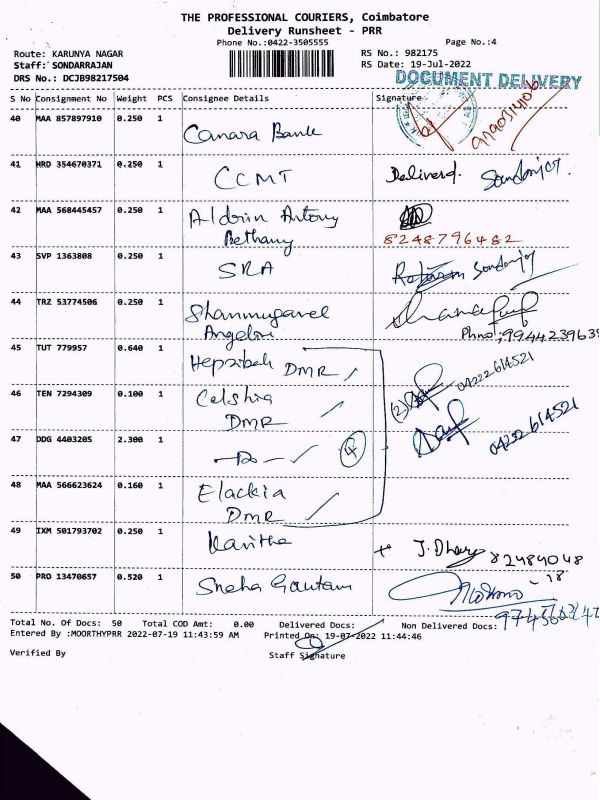 THE PROFESSIONAL COURIERS, Coimbatore
Delivery Runsheet - PRR
Phone No.:0422-3505555 Page No.:4
Route: KARUNYA NAGAR RS No.: 982175
Staff: SONDARRAJAN RS Date: 19-Jul-2022
DRS No.: DCJB98217504
DOCUMENT DELIVERY
S No Consignment No Weight PCS Consignee Details Signature
40 MAA 857897910 0.250 1 Canara Bank
41 HRD 354670371 0.250 1 CCMT Deliverd.
42 MAA 568445457 0.250 1 Aldrin Antony
Bethany 8248796482
43 SVP 1363808 0.250 1 SRA
44 TRZ 53774506 0.250 1 Shanmugavel
Angeline Phno:9944239635
45 TUT 779957 0.640 1 Hepzibah DMR
04222614521
46 TEN 7294309 0.100 1 Celshia
DMR (2)
04222614521
47 DDG 4403205 2.300 1 4
48 MAA 566623624 0.160 1 Elackia
DMR
49 IXM 501793702 0.250 1 Kavitha J. Dhary 82484048
50 PRO 13470657 0.520 1 Sneha Gautam -18
Total No. Of Docs: 50 Total COD Amt: 0.00 Delivered Docs: Non Delivered Docs:
Entered By :MOORTHYPRR 2022-07-19 11:43:59 AM Printed On: 19-07-2022 11:44:46
Verified By Staff Signature